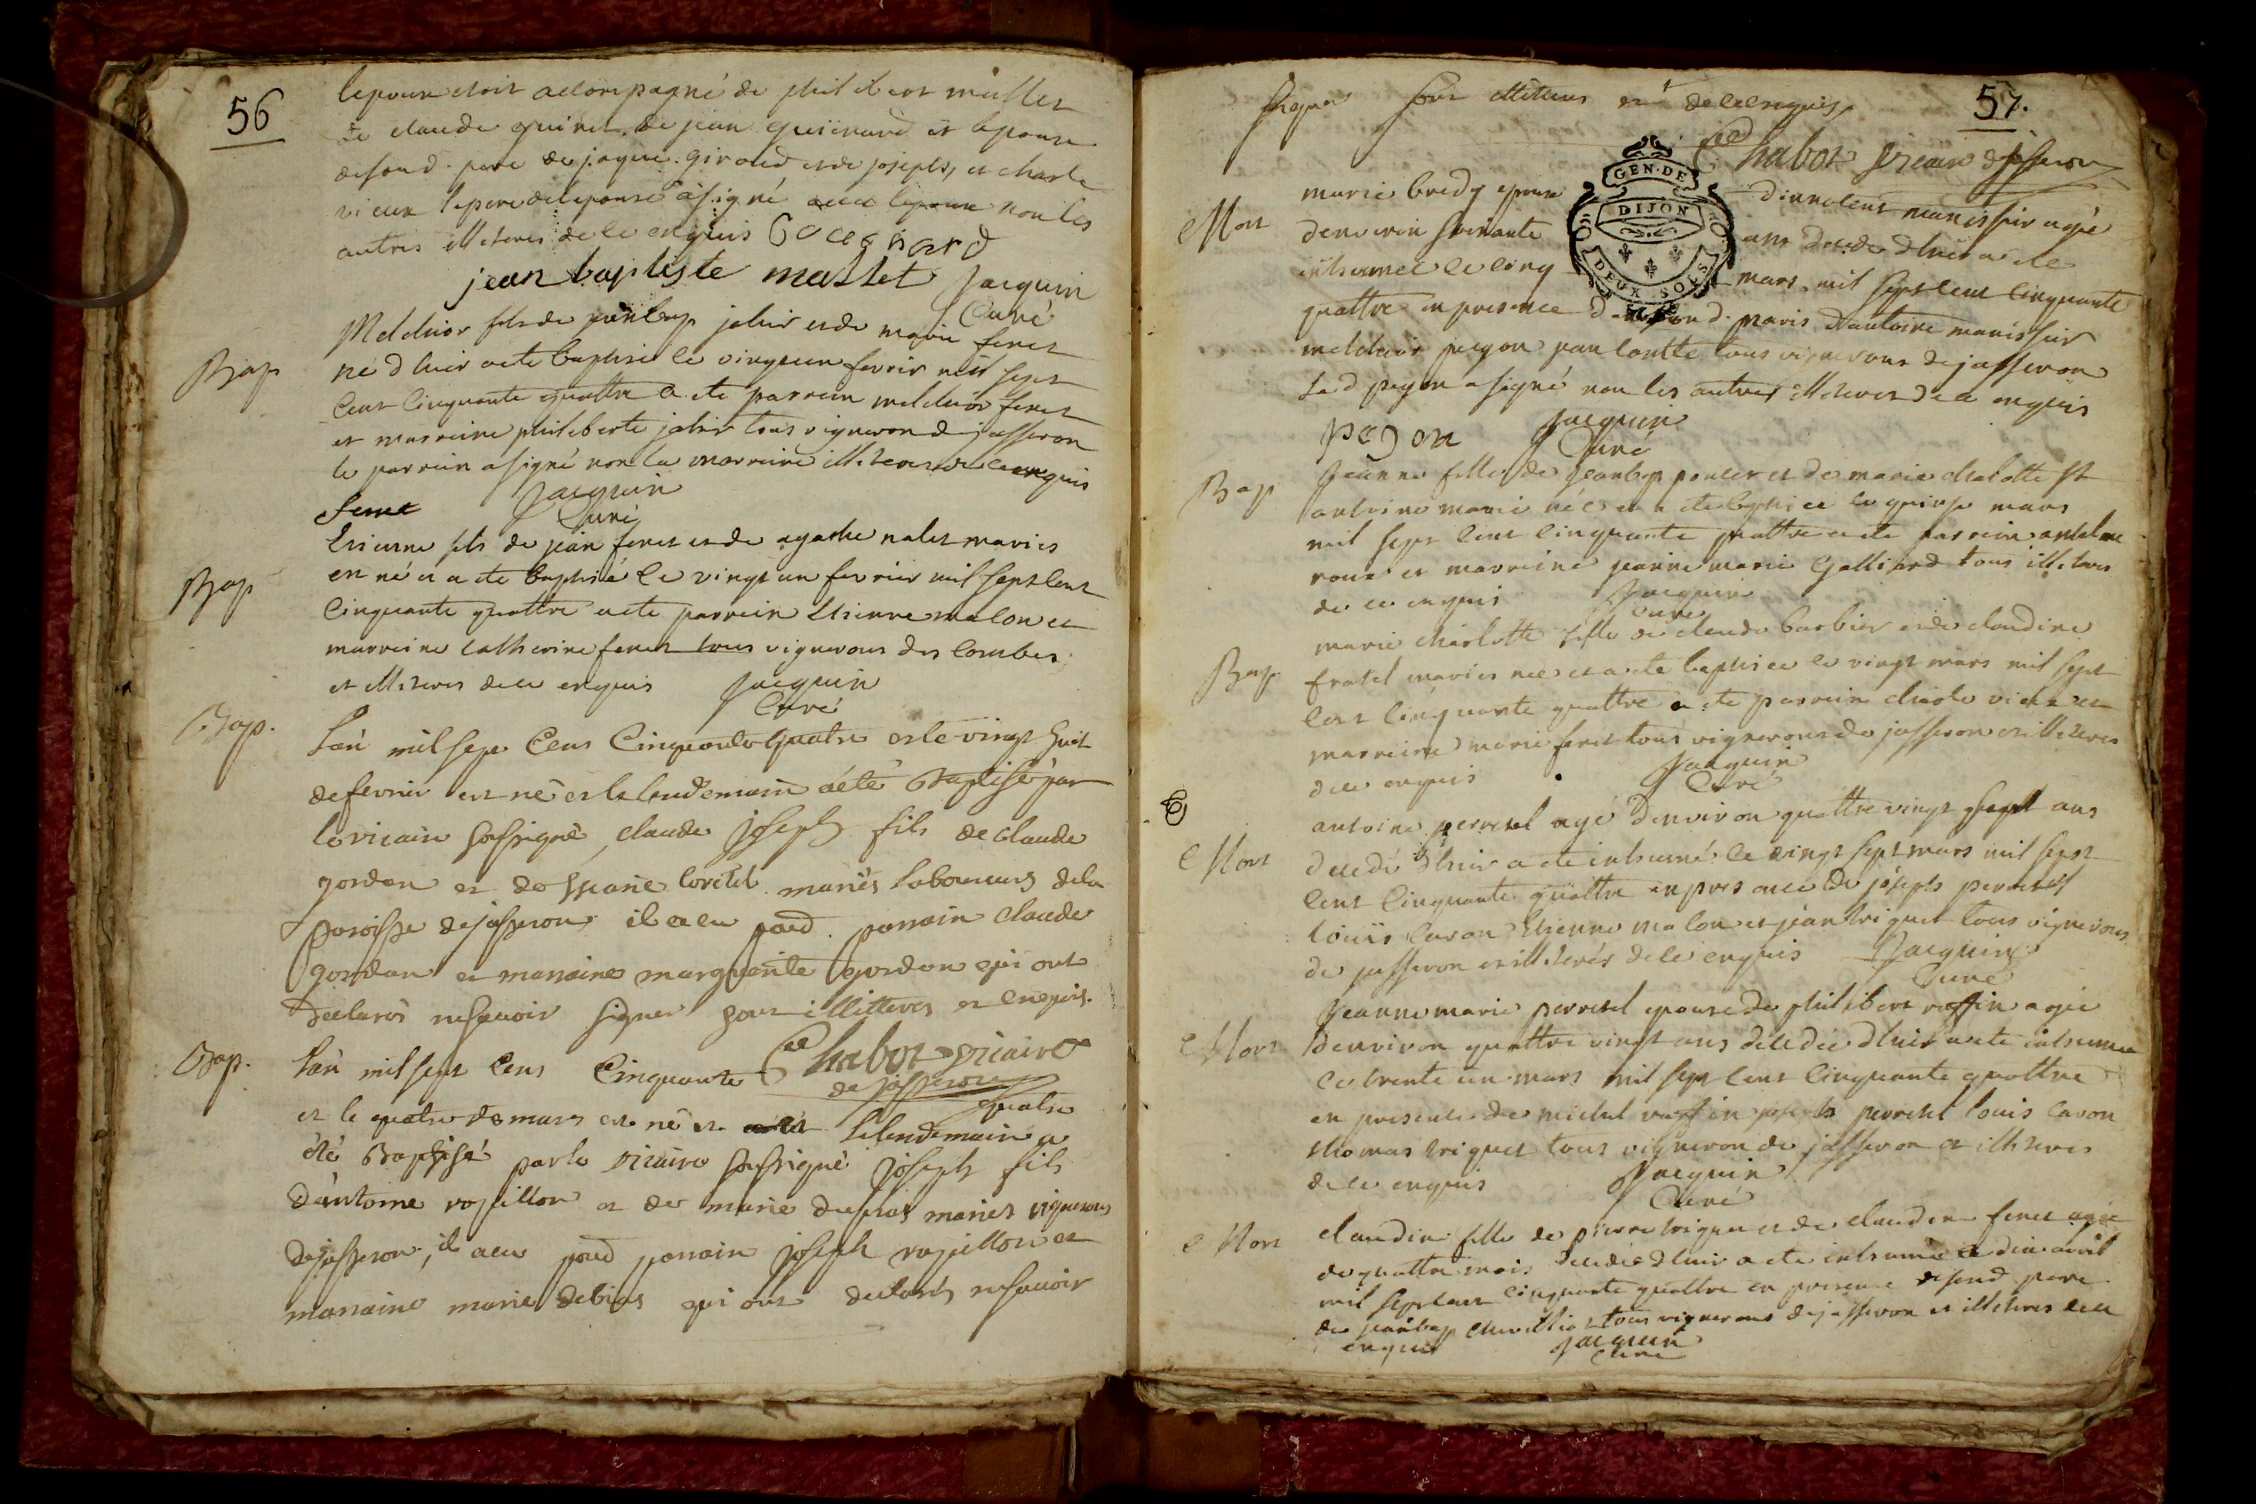 56
l'epoux etoit accompagné de philibert mullet
de claude quinet de jean guicnard et l'epouse
de son d. pere de jaque giroud et de joseph et charle
vieux le pere de l'epouse a signé avec l'epoux non les
autres illiteres de ce enquis Gocgnard
jean baptiste maslet jacquin
Curé
Bap
Melchior fils de jeanbap jolir et de marie feret
né d'hier a ete baptisé le vingt un fevrier mil sept
cent cinquante quattre a ete parrein melchior feret
et marreine philiberte jolir tous vigneron de jasseron
le parrein a signé non la marreine illiteree de ce enquis
feret Jacquin
Curé
Bap
Etienne fils de jean feret et de agathe nalet maries
en né et a ete baptisé le vingt un fevrier mil sept cent
cinquante quattre a ete parrein Etienne malon et
marreine catherine feret tous vignerons des combes
et illiteres de ce enquis Jacquin
Curé
Bap.
L'an mil sept cent cinquante quatre et le vingt huit
de fevrier est né et le lendemain a été Baptisé par
le vicaire soussigné, claude joseph fils de claude
gordon et de marie mariés laboureurs de la
paroisse de jasseron il a eu pour parrain claude
gordon et marraine marguerite gordon qui ont
declarés ne sçavoir signer pour illitteres et enquis.
Chabot vicaire
de jasseron
Bap.
L'an mil sept cent cinquante quatre
et le quatre de mars est né et le lendemain a
été Baptisé par le vicaire soussigné joseph fils
d'antoine ropillon et de marie mariés vignerons
de jasseron, il a eu pour parrain joseph ropillon et
marraine marie debias qui ont declarés ne sçavoir
57.
signer pour illiteres et de ce enquis
Chabot vicaire de jasseron
GEN. DE
DIJON
DEUX SOLS
Mort
marie bredy epouse d'innocent manissier agée
d'environ soixante ans decedée d'hier a ete
inhumée le cinq mars mil sept cent cinquante
quattre en presence de son d. maris d'antoine manissier
melchior pugon tous vignerons de jasseron
le d pegon a signé non les autres illiteres de ce enquis
pegon Jacquin
Curé
Bap
Jeanne fille de jeanbap poncet et de marie charlotte st
antoine marié née et a ete baptisée le quinze mars
mil sept cent cinquante quattre a ete parrein antelme
roux et marreine jeanne marie Galliard tous illiteres
de ce enquis Jacquin
Curé
Bap
marie charlotte fille de claude barbier et de claudine
fratel maries née et a ete baptisée le vingt mars mil sept
cent cinquante quattre a ete parrein charle vieux et
marreine marie feret tous vignerons de jasseron et illiteres
de ce enquis Jacquin
Curé
Mort
antoine perretel agé d'environ quattre vingt sept ans
decedé d'hier a ete inhumé le vingt sept mars mil sept
cent cinquante quattre en presence de joseph perretel
louis caron Etienne malon et jean triquet tous vignerons
de jasseron et illiterés de ce enquis Jacquin
Curé
Mort
Jeanne marie perretel epouse de philibert raffin agée
d'environ quattre vingt ans decedée d'hier a ete inhumée
le trente un mars mil sept cent cinquante quattre
en presence de michel raffin joseph perretel louis caron
thomas triquet tous vigneron de jasseron et illiteres
de ce enquis Jacquin
Curé
Mort
claudine fille de pierre triquet et de claudine feret agée
de quattre mois decedée d'hier a ete inhumée le dix avril
mil sept cent cinquante quattre en presence de son d. pere
de jeanbap chevillia tous vignerons de jasseron et illiteres de ce
enquis Jacquin
Curé